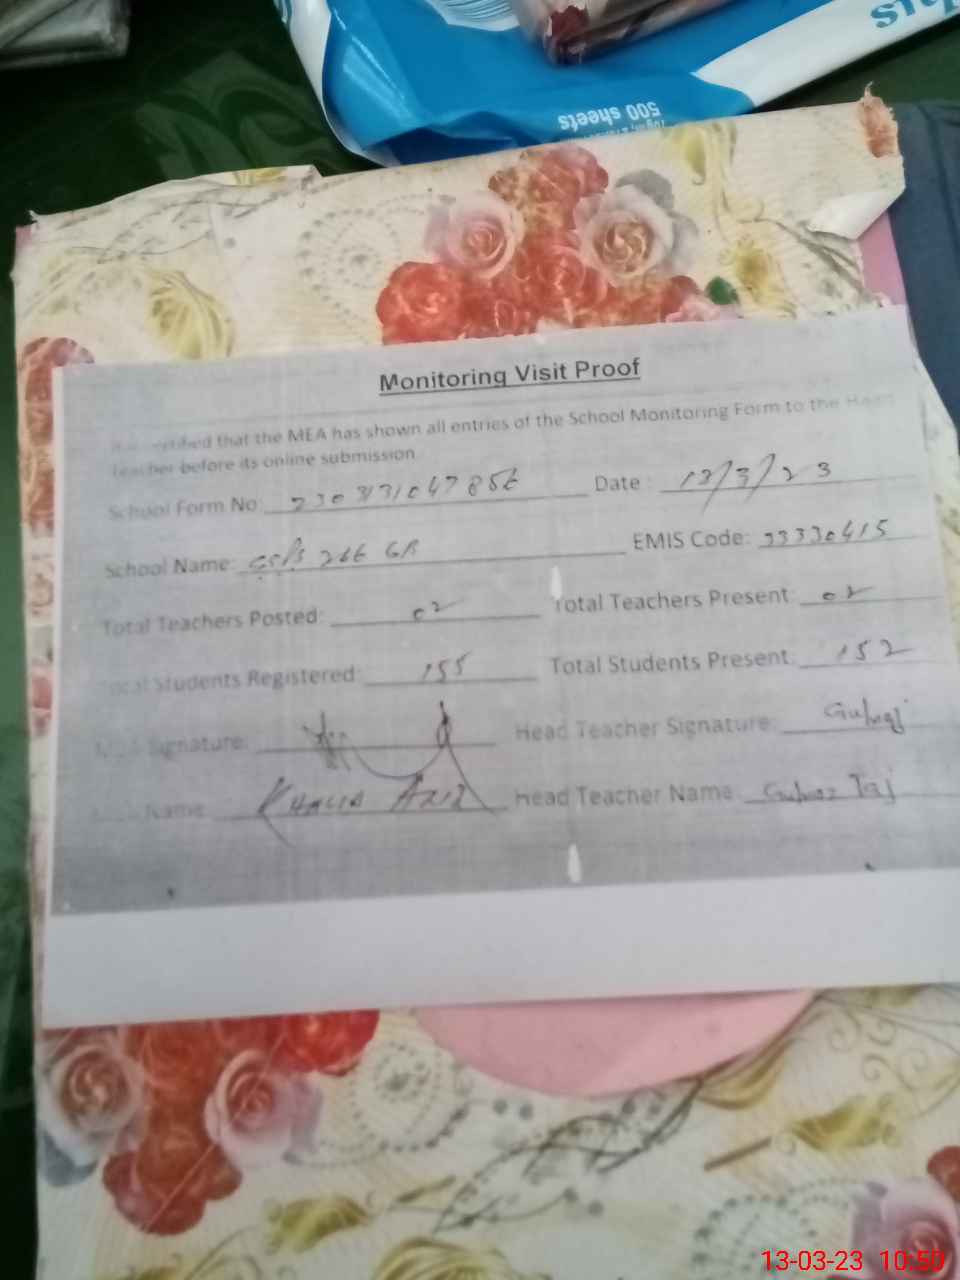 500 sheets
Monitoring Visit Proof
It is certified that the MEA has shown all entries of the School Monitoring Form to the Head
Teacher before its online submission
School Form No: Date : 13/3/23
School Name: 266 GB EMIS Code: 33330415
Total Teachers Posted: 02 Total Teachers Present: 02
Total Students Registered: 155 Total Students Present: 152
Signature: Head Teacher Signature:
Name: KHALID AZIZ Head Teacher Name: Taj
13-03-23 10:50